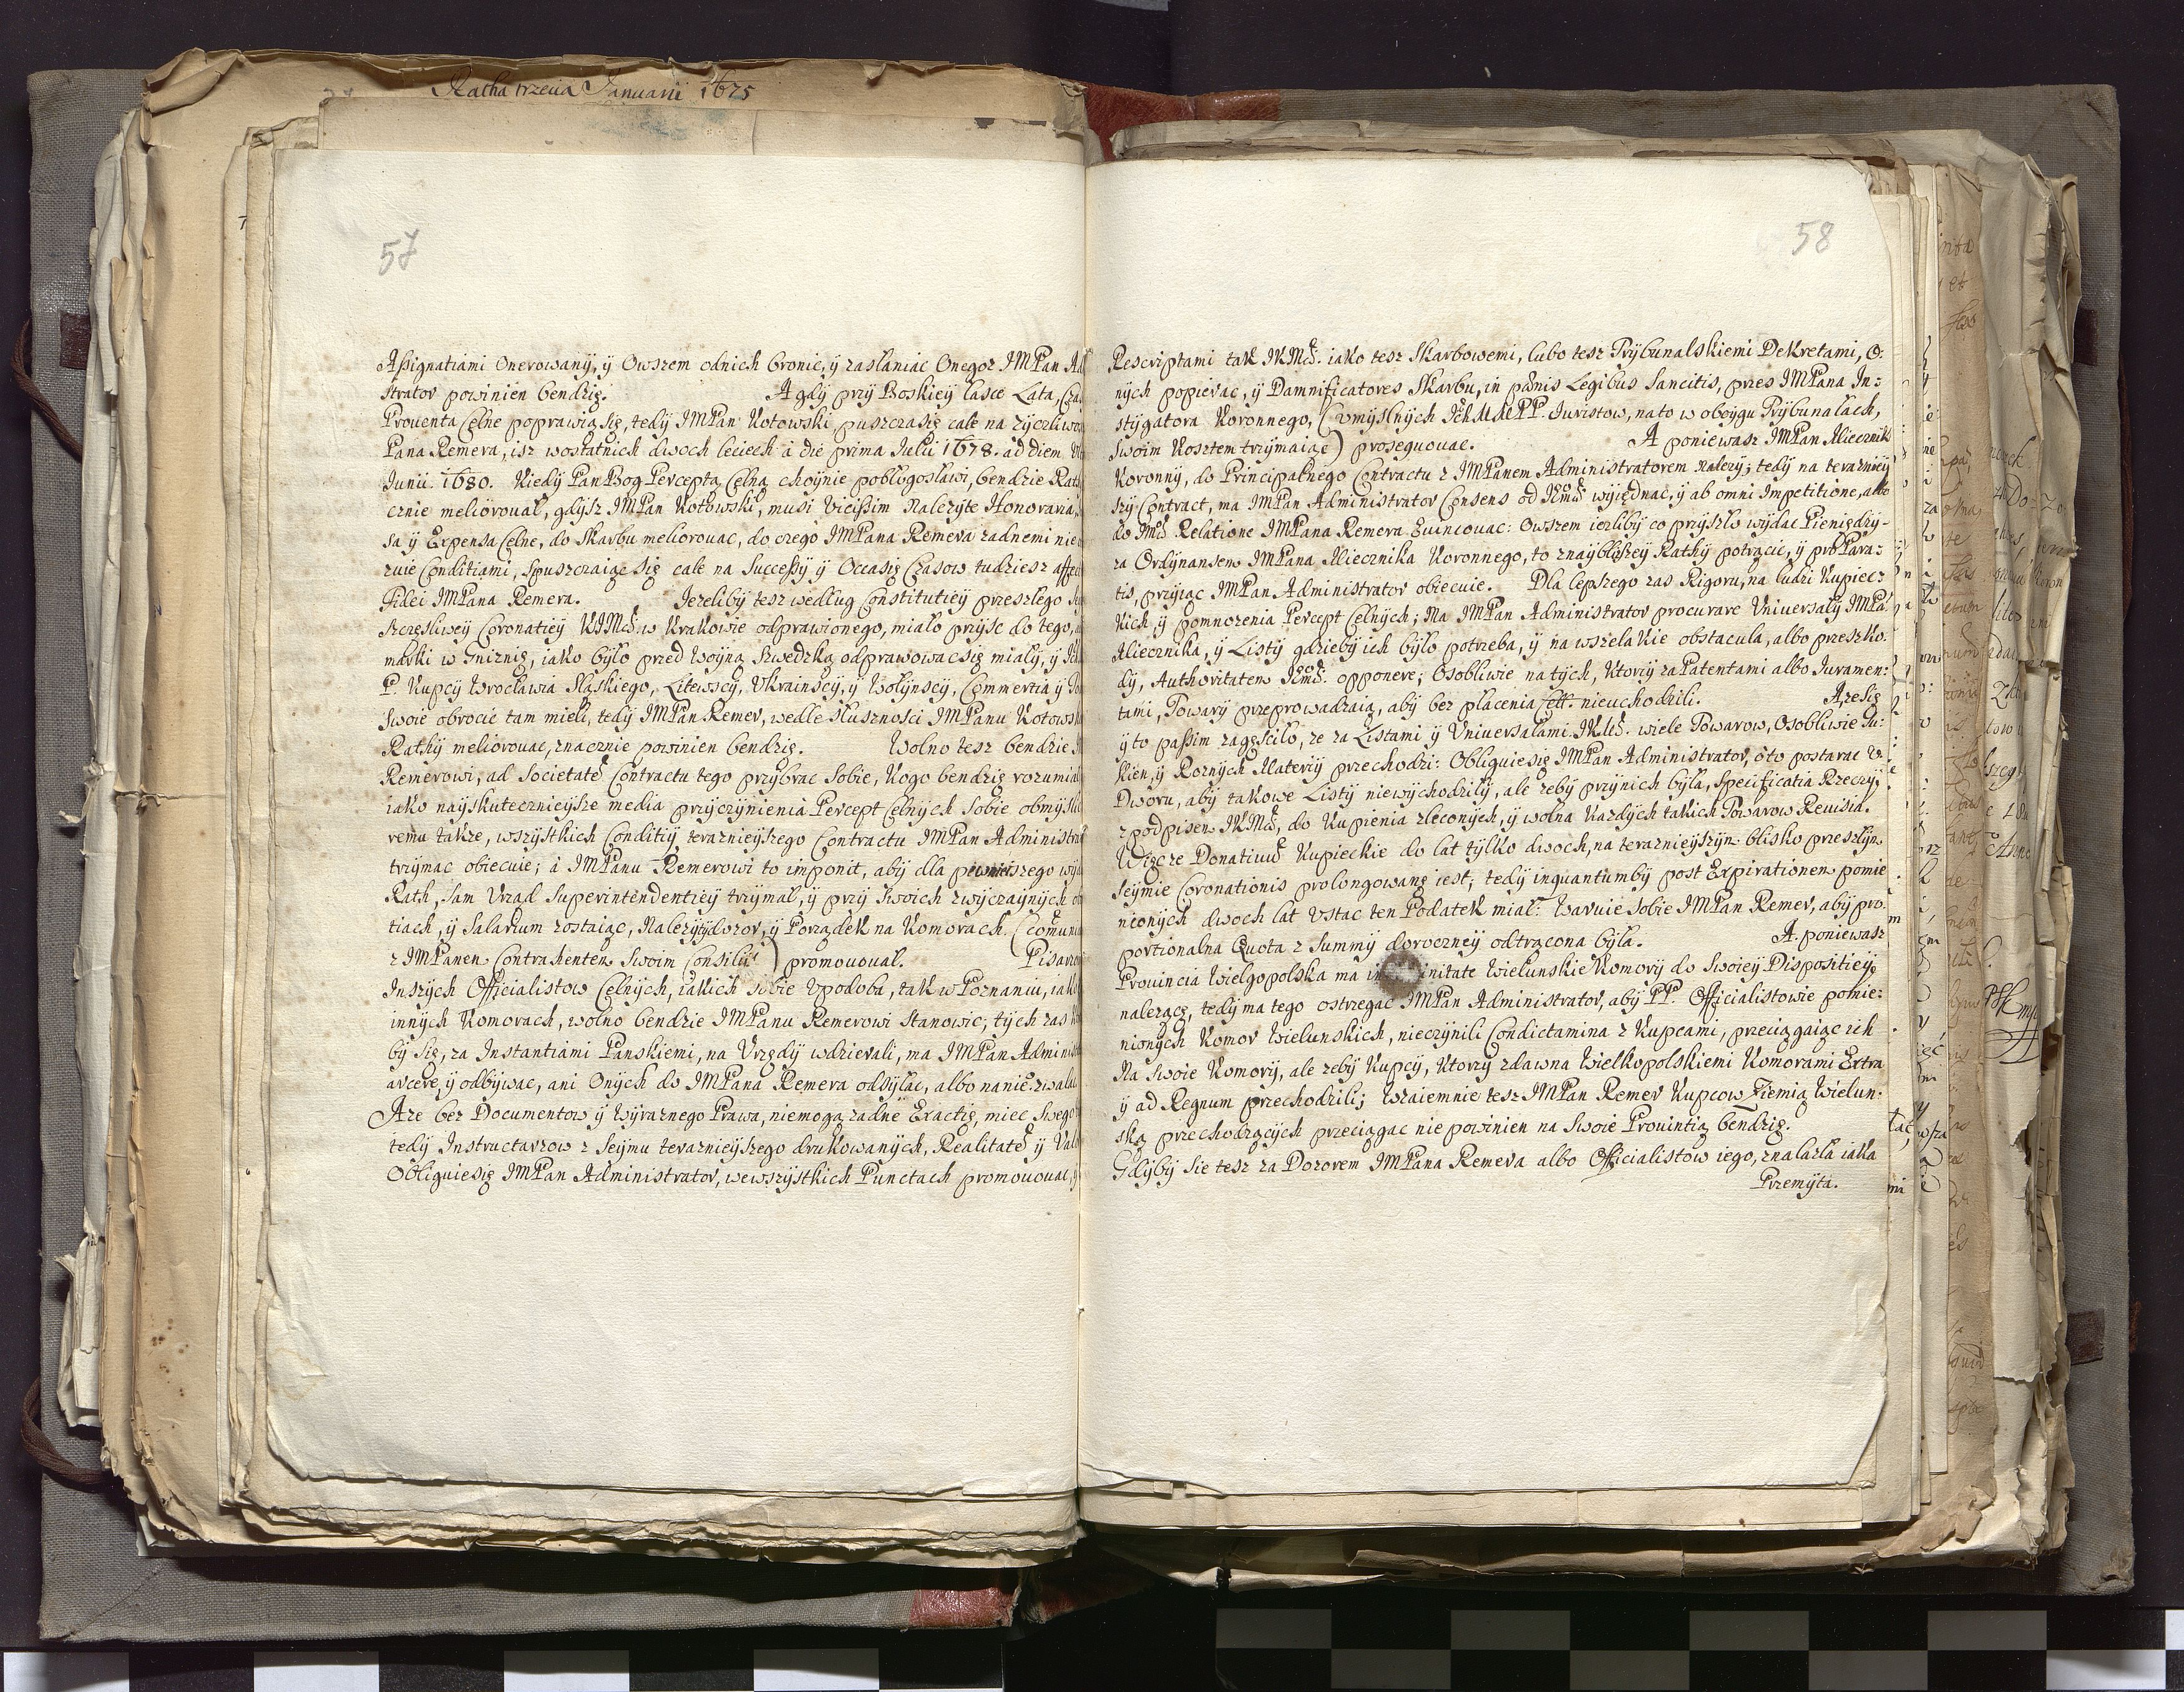 Ratha trzecia Januarii 1675
57
Assignatiami Onerowany, ÿ Owszem odnich bronic, ÿ zaslaniac Onegoz IMPan Ad
strator powinien bendzię. A gdÿ przÿ Boskieÿ lasce Lata, Cza
Prouenta Celne poprawiąsię, tedÿ IMPan Kotowski puszczasię cale na zÿczliwo
Pana Remera, isz wostatnich dwoch leciech à die prima Julij 1678. ad diem
Junii. 1680. Kiedÿ Pan Bog Percepta Celną choÿnie poblogoslawi, bendzie Rath
cznie meliorouał, gdÿsz IMPan Kotowski, musi Vicissim Nalezÿte Honoraria,
sa ÿ Expensa Celne, do Skarbu meliorouac, do czego IMPana Remera zadnemi nie
zuie Conditiami, Spuszczaiąc się cale na Successÿ ÿ Occasię Czasow tudziesz affec
Fidei IMPana Remera. Jezelibÿ tesz według Constitutieÿ przeszlego
Szczęsliweÿ Coronatieÿ KIMci. w Krakowie odprawionego, mialo przÿsc do tego,
marki w Gniznię, iako bÿło przed Woÿną Szwedzką odprawowac się miałÿ, ÿ
P. Kupcÿ Wrocławia Sląskiego, Litewscÿ, Vkrainscÿ, ÿ Wołÿnscÿ, Commertia ÿ
Swoie obrocic tam mieli, tedÿ IMPan Remer, wedle Slusznosci IMPanu Kotows
Rathÿ meliorouac, znacznie powinien bendzię. Wolno tesz bendzie
Remerowi, ad Societatem Contractu tego przÿbrac Sobie, Kogo bendzię rozumiał
iako naÿskutecznieÿsze media przÿczÿnienia Percept Celnÿch Sobie obmÿsli
remu takze, wszÿstkich Conditiÿ teraznieÿszego Contractu IMPan Administra
trzÿmac obiecuie; à IMPanu Remerowi to imponit, abÿ dla pewnieiszego wÿ
Rath, Sam Vrząd Superintendentieÿ trzÿmał, ÿ przÿ Swoich zwÿczaÿnÿch
tiach, ÿ Salarium zostaiąc, Nalezÿtÿ dozor, ÿ Porządek na Komorach. (comuni
z IMPanem Contrahentem Swoim Consilium) promououał. Pisarzow
Inszÿch Officialistow Celnÿch, iakich sobie Vpodoba, tak w Poznaniu, iako
innÿch Komorach, wolno bendzie IMPanu Remerowi Stanowic; tÿch zas
bÿ Się, za Instantiami Panskiemi, na Vrzędÿ wdzierali, ma IMPan Adminis
arcere, ÿ odbÿwac, ani Onÿch do IMPana Remera odsÿłac, albo naniē zwalac
Aze bez Documentow ÿ Wÿraznego Prawa, niemogą zadne Exactię, miec Swego
tedÿ Instructarzow z Seÿmu teraznieÿszego drukowanÿch, Realitatem ÿ Val
Obliguiesię IMPan Administrator, wewszÿstkich Punctach promououac,
58
Rescriptami tak IKMci. iako tesz Skarbowemi, lubo tesz Trÿbunalskiemi Dekretami, O:
nÿch popierac, ÿ Damnificatores Skarbu, in pœnis Legibus Sancitis, przes IMPana In:
stÿgatora Koronnego, (vmÿslnÿch IchMMPP. Iuristow, na to w oboÿgu Trÿbunałach,
Swoim Kosztem trzÿmaiąc) prosequouac. A poniewasz IMPan Miecznik
Koronnÿ, do Principalnego Contractu z IMPanem Administratorem nalezÿ; tedÿ na teraznieÿ
szÿ Contract, ma IMPan Administrator Consens od IKmci wÿiędnac, ÿ ab omni Impetitione, albo
do IMci Relatione IMPana Remera Euincouac: Owszem iezlibÿ co przÿszło wÿdac Pieniędzÿ-
za Ordÿnansem IMPana Miecznika Koronnego, to znaÿblisszeÿ Rathÿ potrącic, ÿ pro Para:
tis, przÿiąc IMPan Administrator obiecuie. Dla lepszego zas Rigoru, na ludzi Kupiec:
kich ÿ pomnozenia Percept Celnÿch; Ma IMPan Administrator procurare Uniuersalÿ IMPa:
Miecznika, ÿ Listÿ gdziebÿ ich bÿło potrzeba, ÿ na wszelakie obstacula, albo przeszko:
dÿ, Authoritatem IKmci. opponere; Osobliwie na tÿch, Ktorzÿ za Patentami albo Iuramen:
tami, Towarÿ przeprowadzaią, abÿ bez płacenia Cełł. nieuchodzili. Aze się
ÿ to passim zagęsciło, ze za Listami ÿ Uniuersałami IKMci. wiele Towarow, Osobliwie Su:
kien, ÿ Roznÿch Materiÿ przechodzi: Obliguiesię IMPan Administrator, oto postarac V:
Dworu, abÿ takowe Listÿ niewÿchodziłÿ, ale zebÿ przÿnich bÿła, Specificatia Rzeczÿ,
z podpisem IKMci, do Kupienia zleconÿch, ÿ wolna Kazdÿch takich Towarow Reuisia.
Więc ze Donatiuum Kupieckie do lat tÿlko dwoch, na teraznieÿszÿm blisko przeszłÿm
Seÿmie Coronationis prolongowane iest; tedÿ inquantumbÿ post Expirationem pomie
nionÿch dwoch lat Vstac ten Podatek miał: Waruie Sobie IMPan Remer, abÿ pro:
portionalna Quota z Summÿ doroczneÿ odtrącona bÿła. A. poniewasz
Prouincia Wielgopolska ma in initate Wielunskie Komorÿ do Swoieÿ Dispositieÿ
nalezące, tedÿ ma tego ostrzegac IMPan Administrator, abÿ PP. Officialistowie pomie:
nionÿch Komor Wielunskich, nieczÿnili Condictamina z Kupcami, przeciągaiąc ich
Na Swoie Komorÿ, ale zebÿ Kupcÿ, Ktorzÿ zdawna Wielkopolskiemi Komorami Extra
ÿ ad Regnum przechodzili; Wzaiemnie tesz IMPan Remer Kupcow Ziemią Wielun:
ską przechodzącÿch przeciągac nie powinien na Swoie Prouintię bendzię.
Gdÿbÿ sie tesz za Dozorem IMPana Remera albo Officialistow iego, znalazła iaka
Przemÿta.